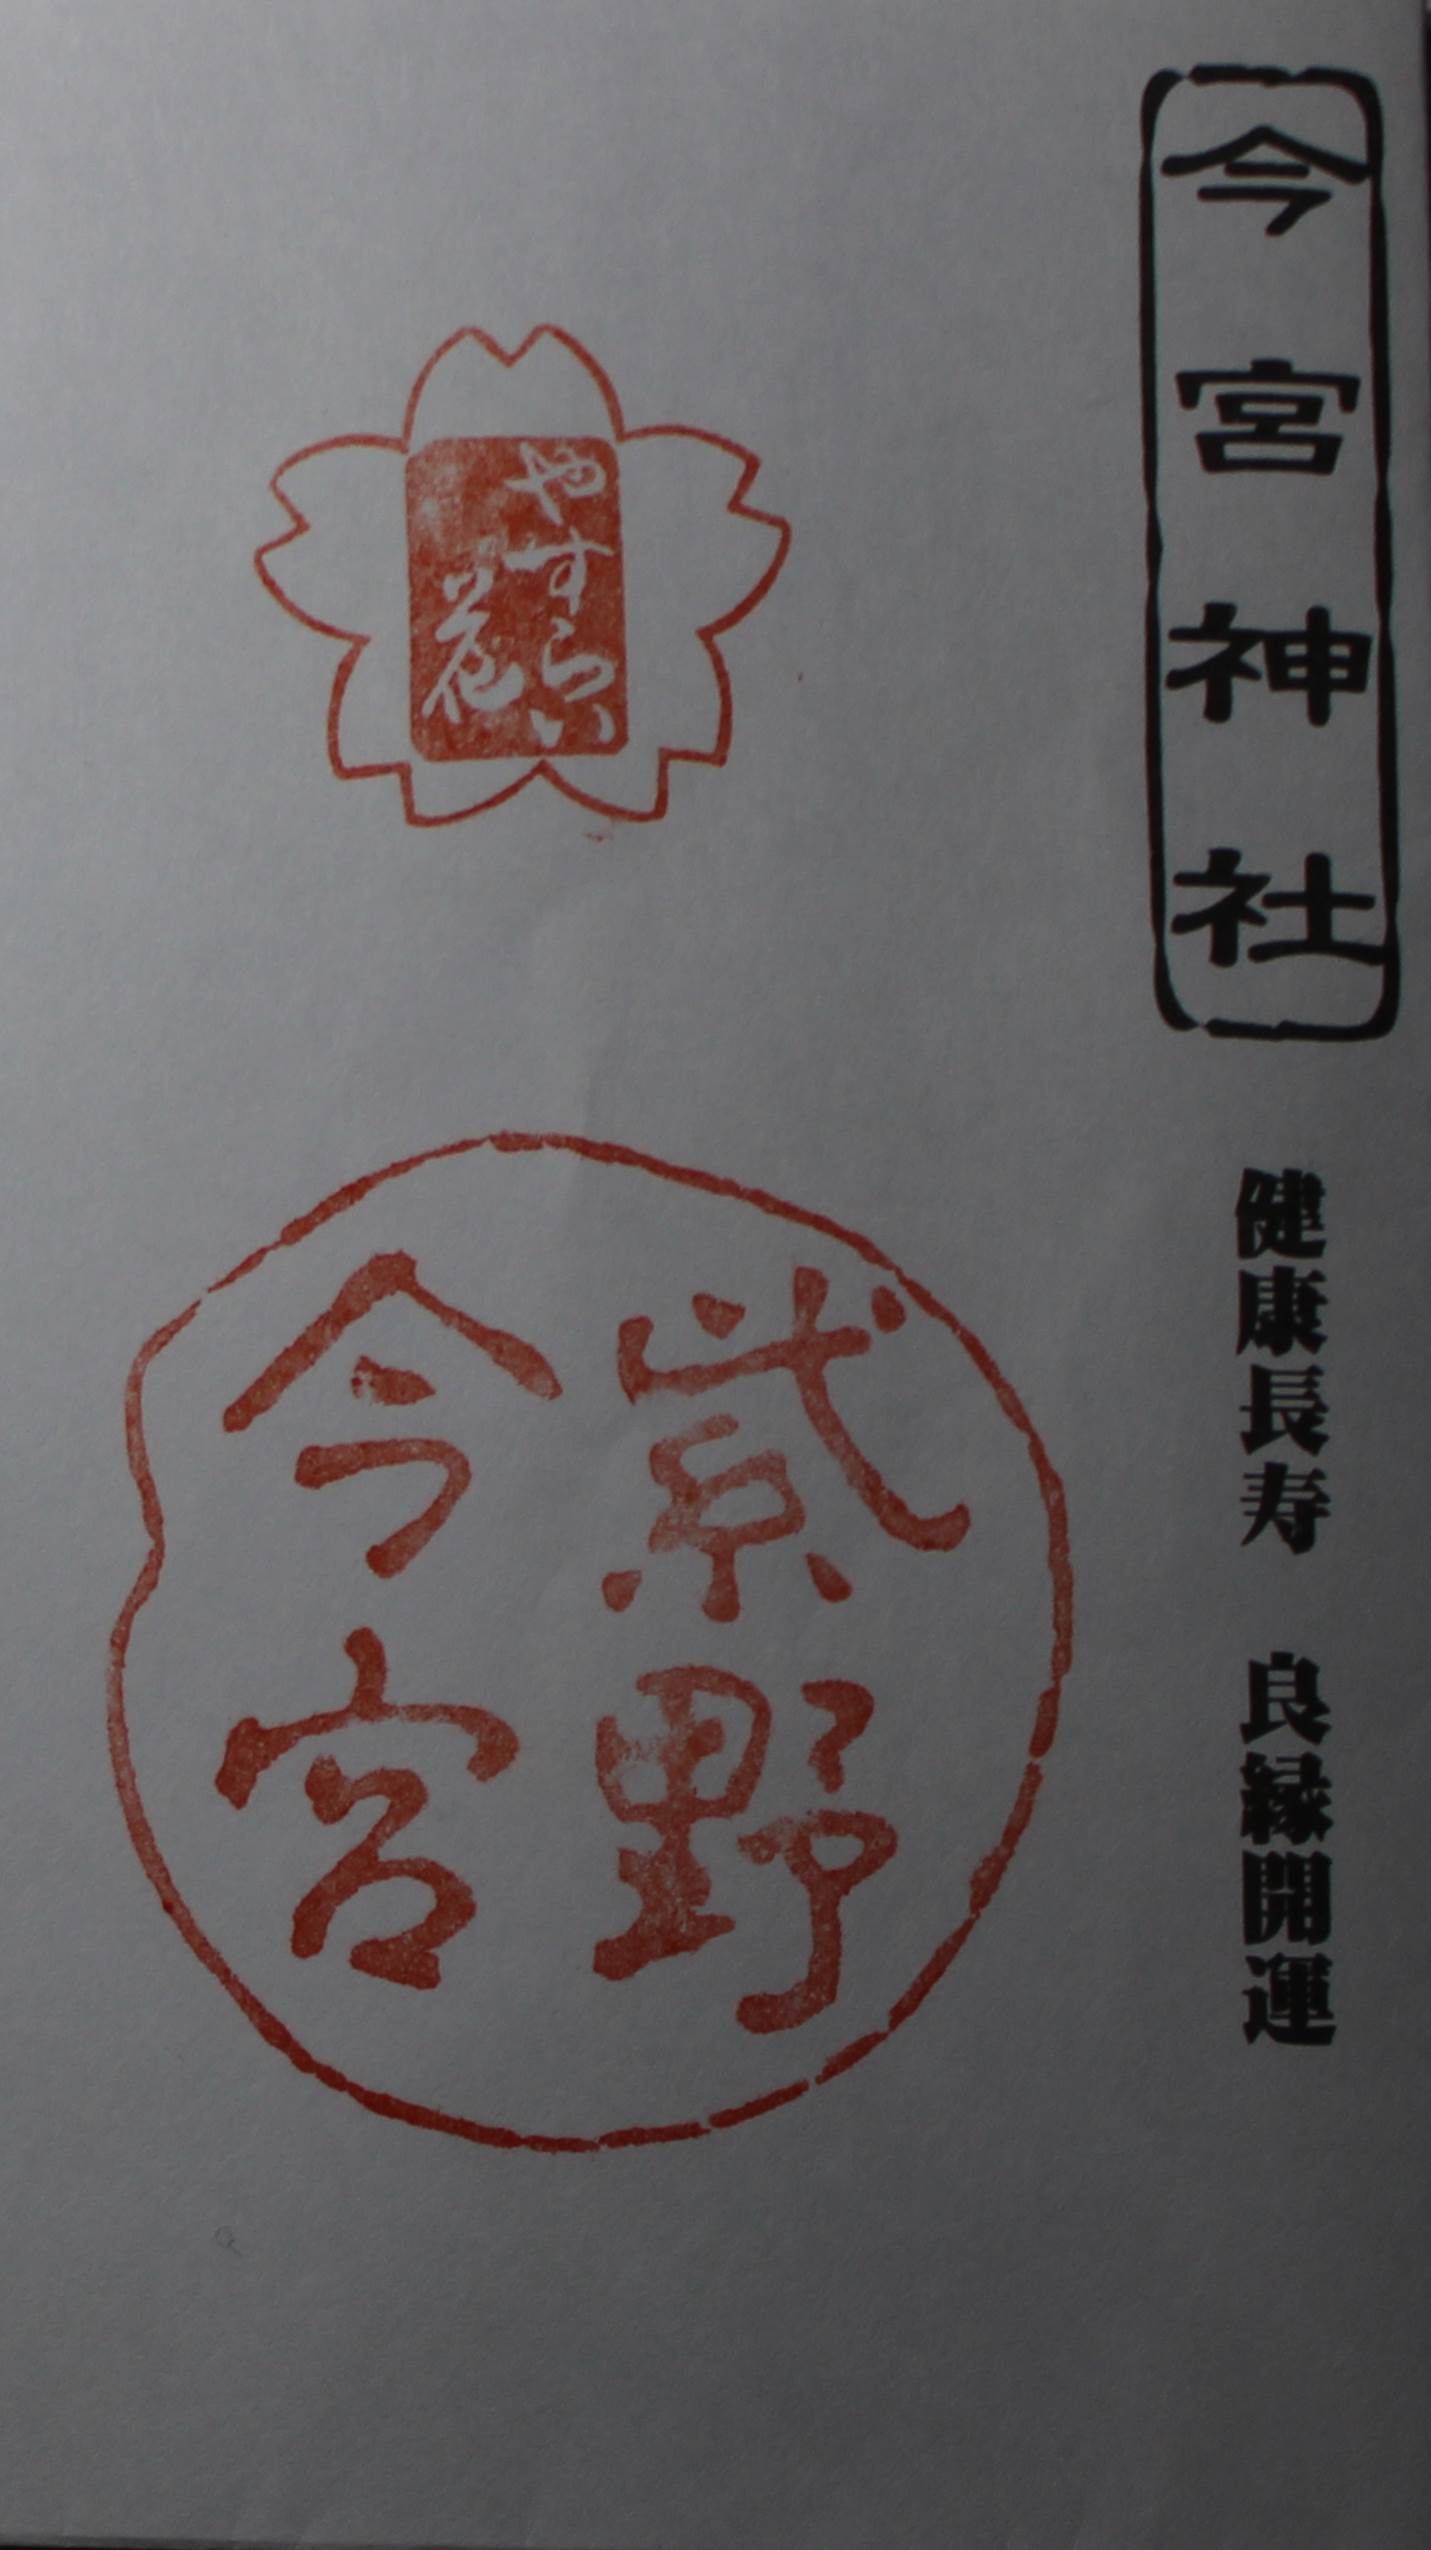 今宮神社
健康長寿　良縁開運
やすらい
花
紫野
今宮